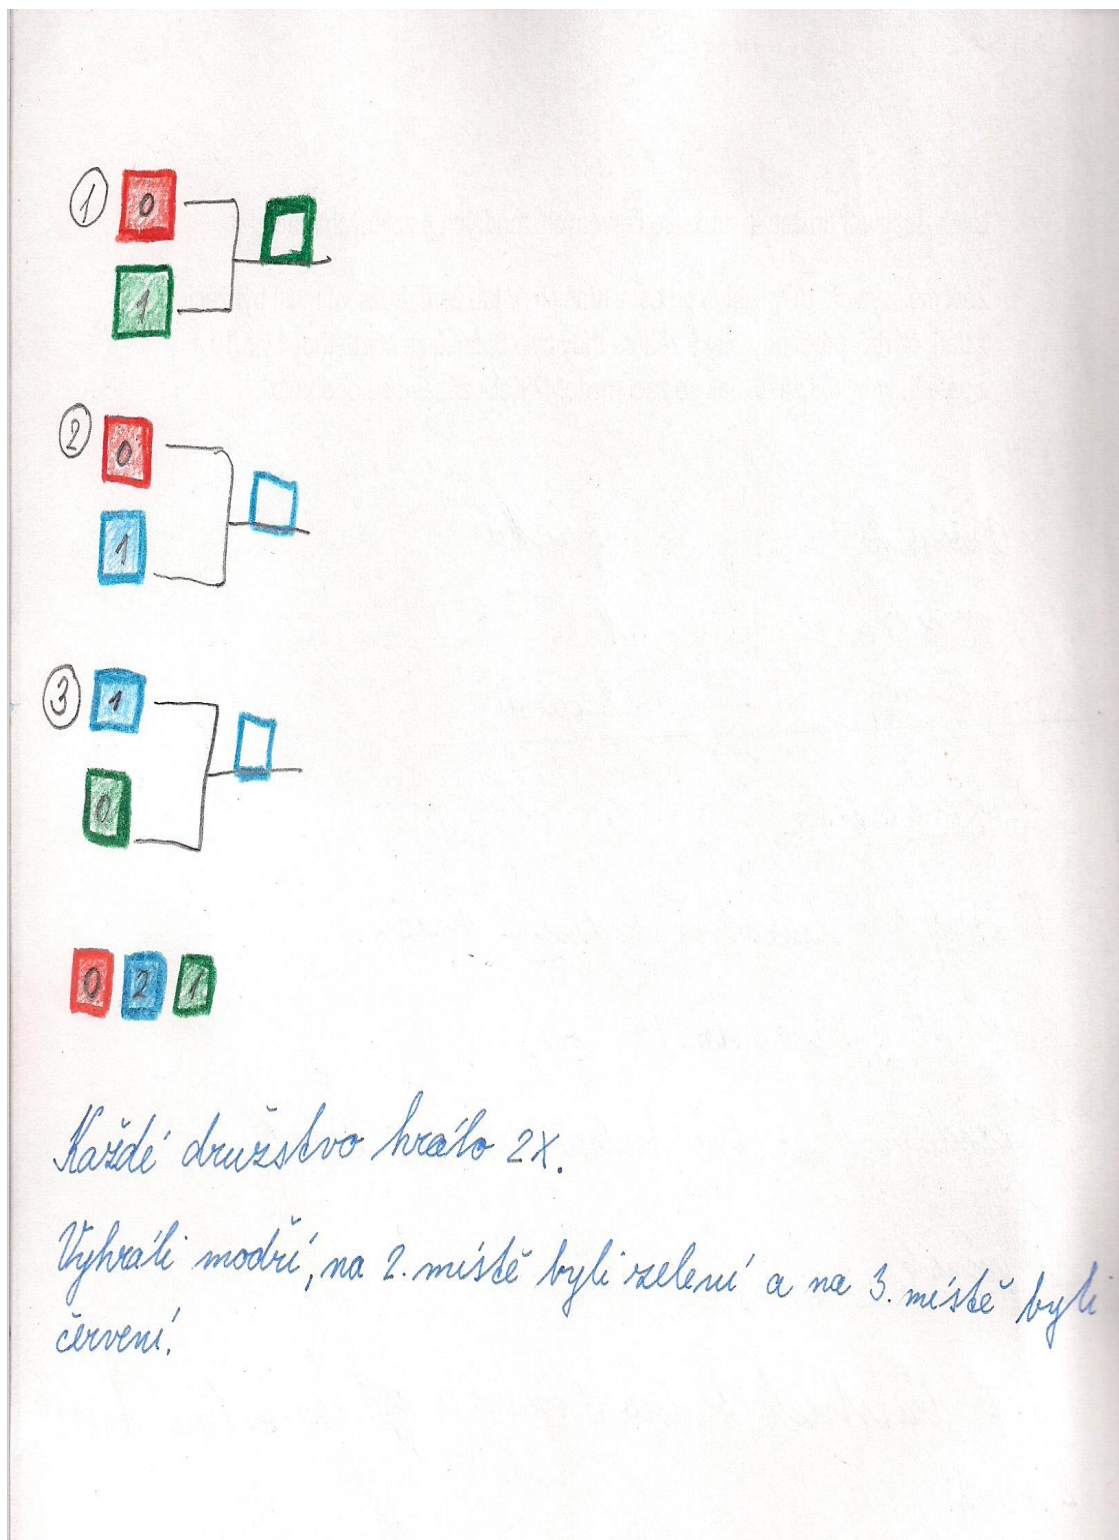 1 0
1
2 0
1
3 1
0
0 2 1
Každé družstvo hrálo 2x.
Vyhráli modří, na 2. místě byli zelení a na 3. místě byli
červení.